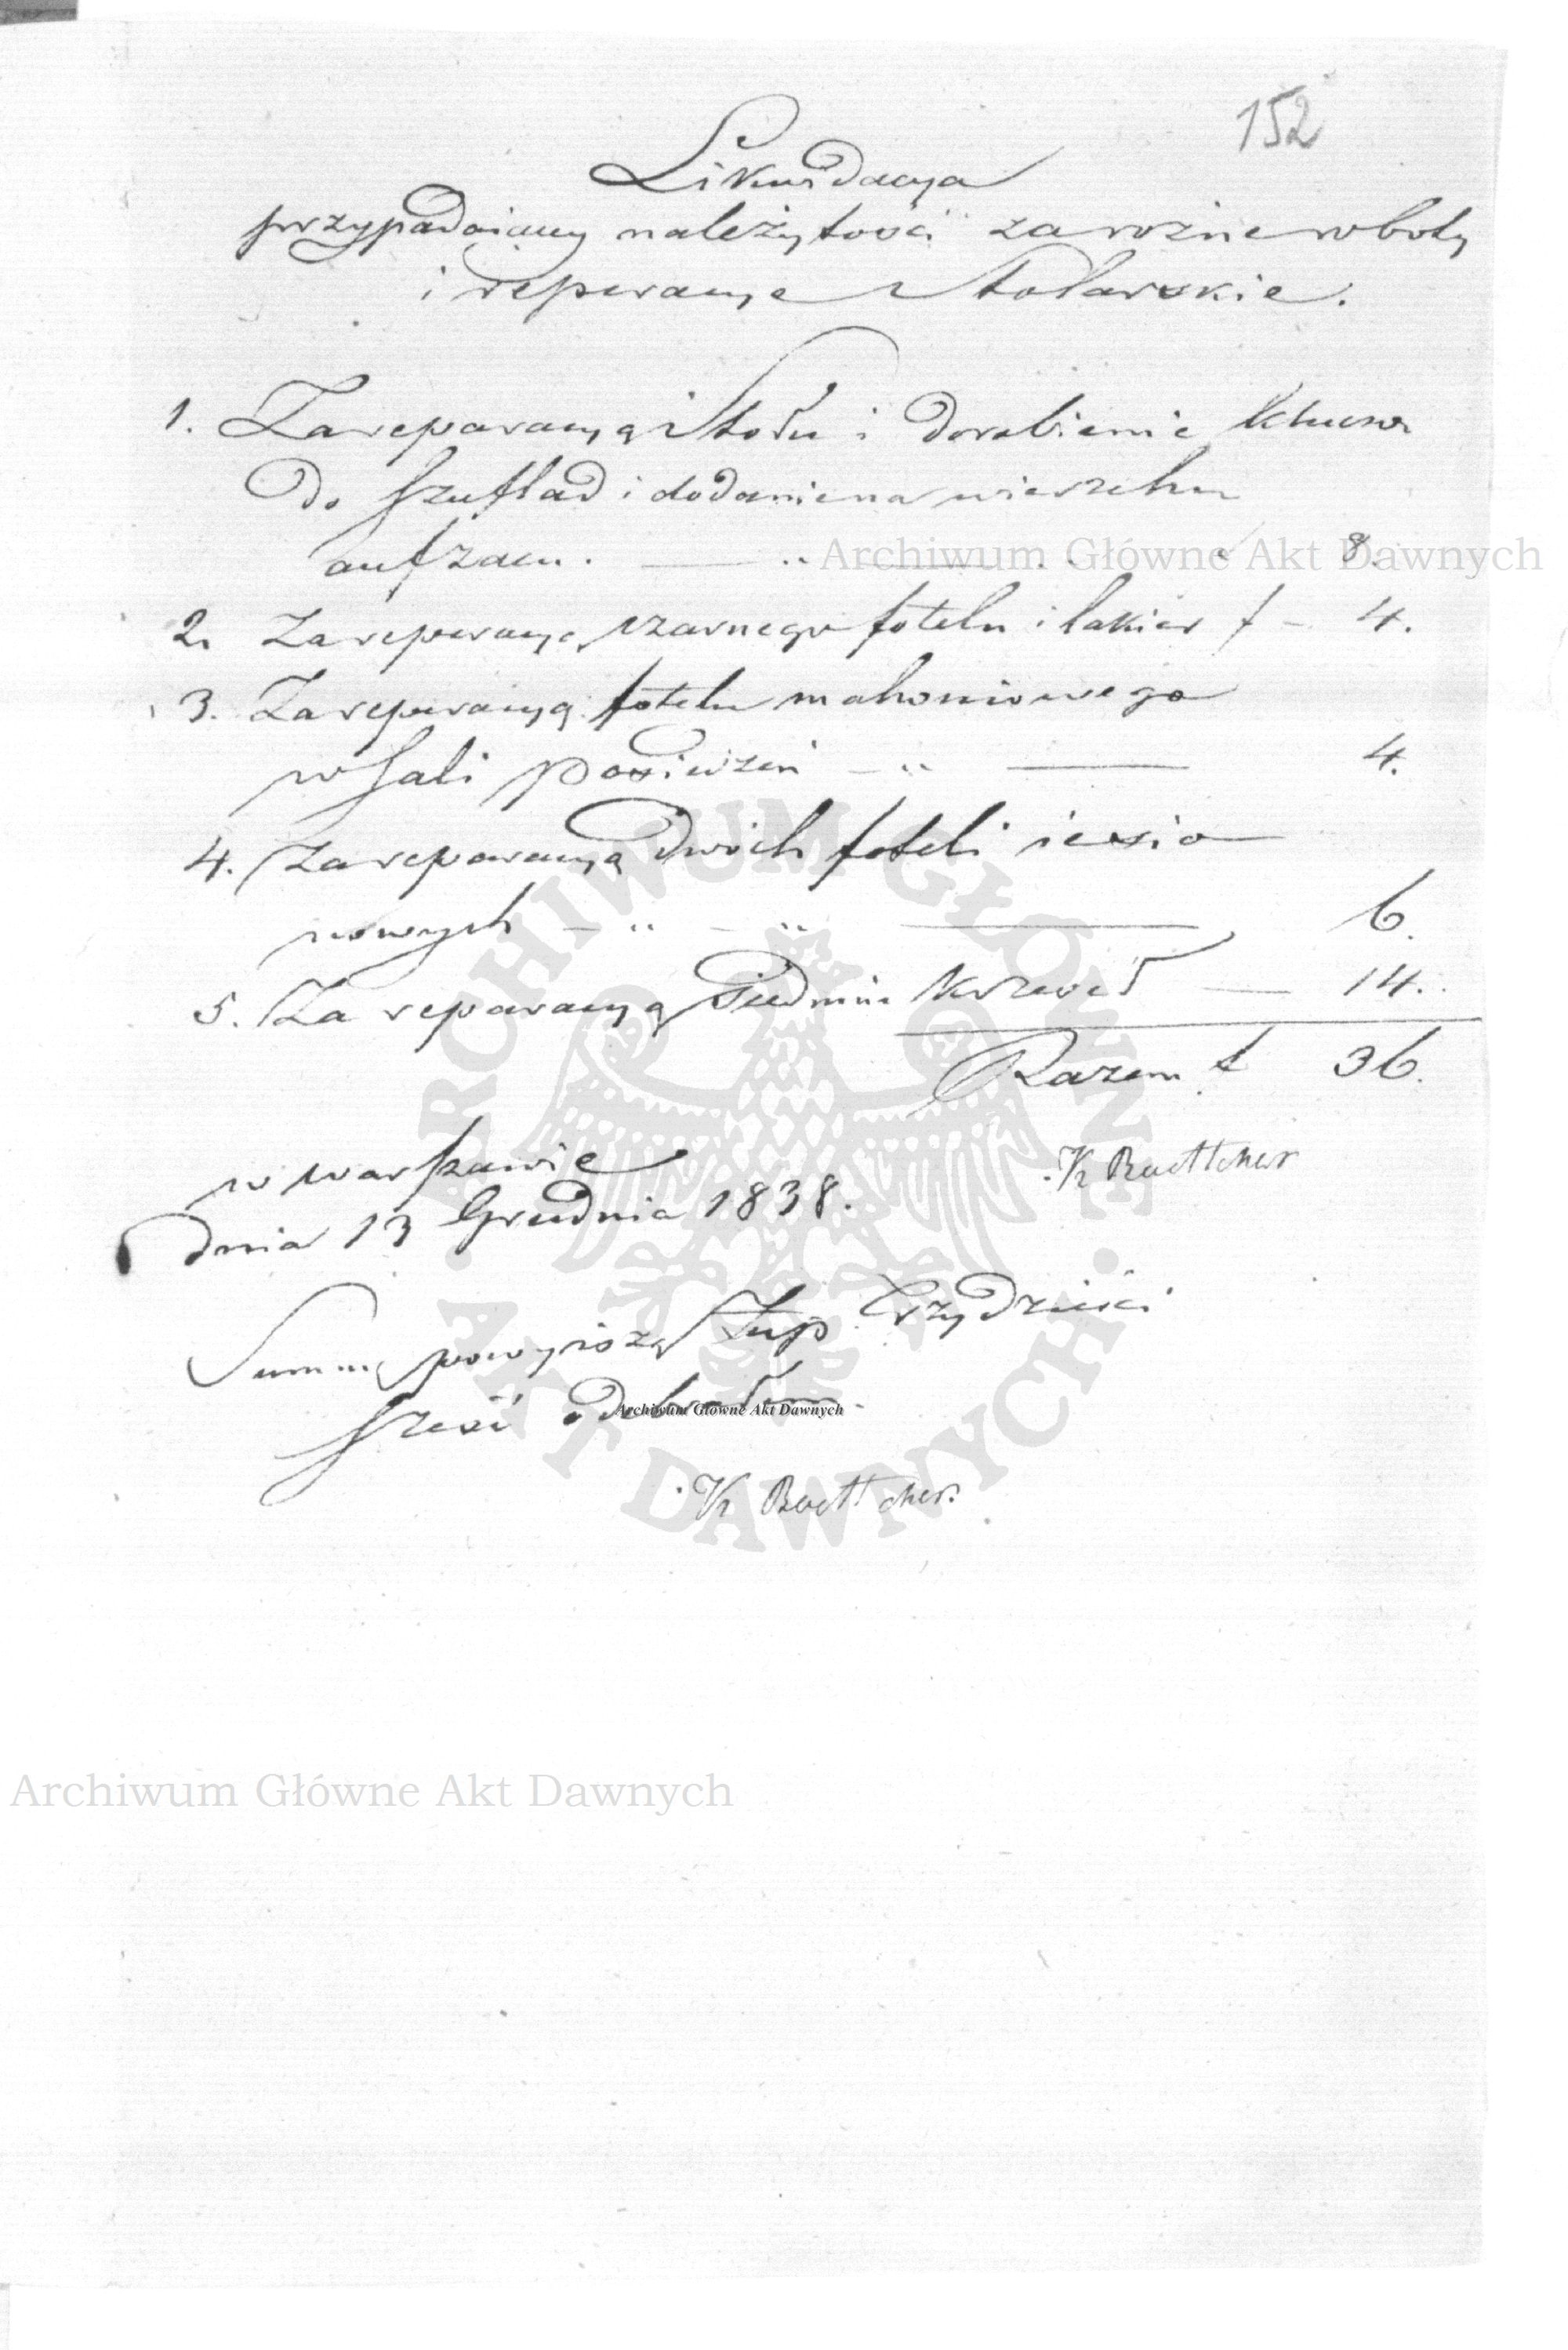 152
Likwidacya
przypadaiący należytości za rożne roboty
i reperacye Stolarskie.
1. Za reparacyą Stołu i dorobienie klucza
do szuflad i dodanie na wierzchu
aufzacu. — „ — 8.
Archiwum Główne Akt Dawnych
2. Za reperacye czarnego fotelu i lakier f – 4.
3. Za reperacyą fotelu mahoniowego
w sali Posiedzeń – „ — 4.
4. Za reparacyą dwóch foteli iesio
nowych – „ – „ — 6.
5. Za reparacyą siedmiu Krzeseł — 14.
Razem f 36.
w Warszawie
K Boettcher
dnia 13 Grudnia 1838.
Summę powyższą Złp Trzydzieści
sześć odebrałem.
Archiwum Główne Akt Dawnych
K Boettcher.
ARCHIWUM GŁÓWNE · AKT DAWNYCH ·
Archiwum Główne Akt Dawnych